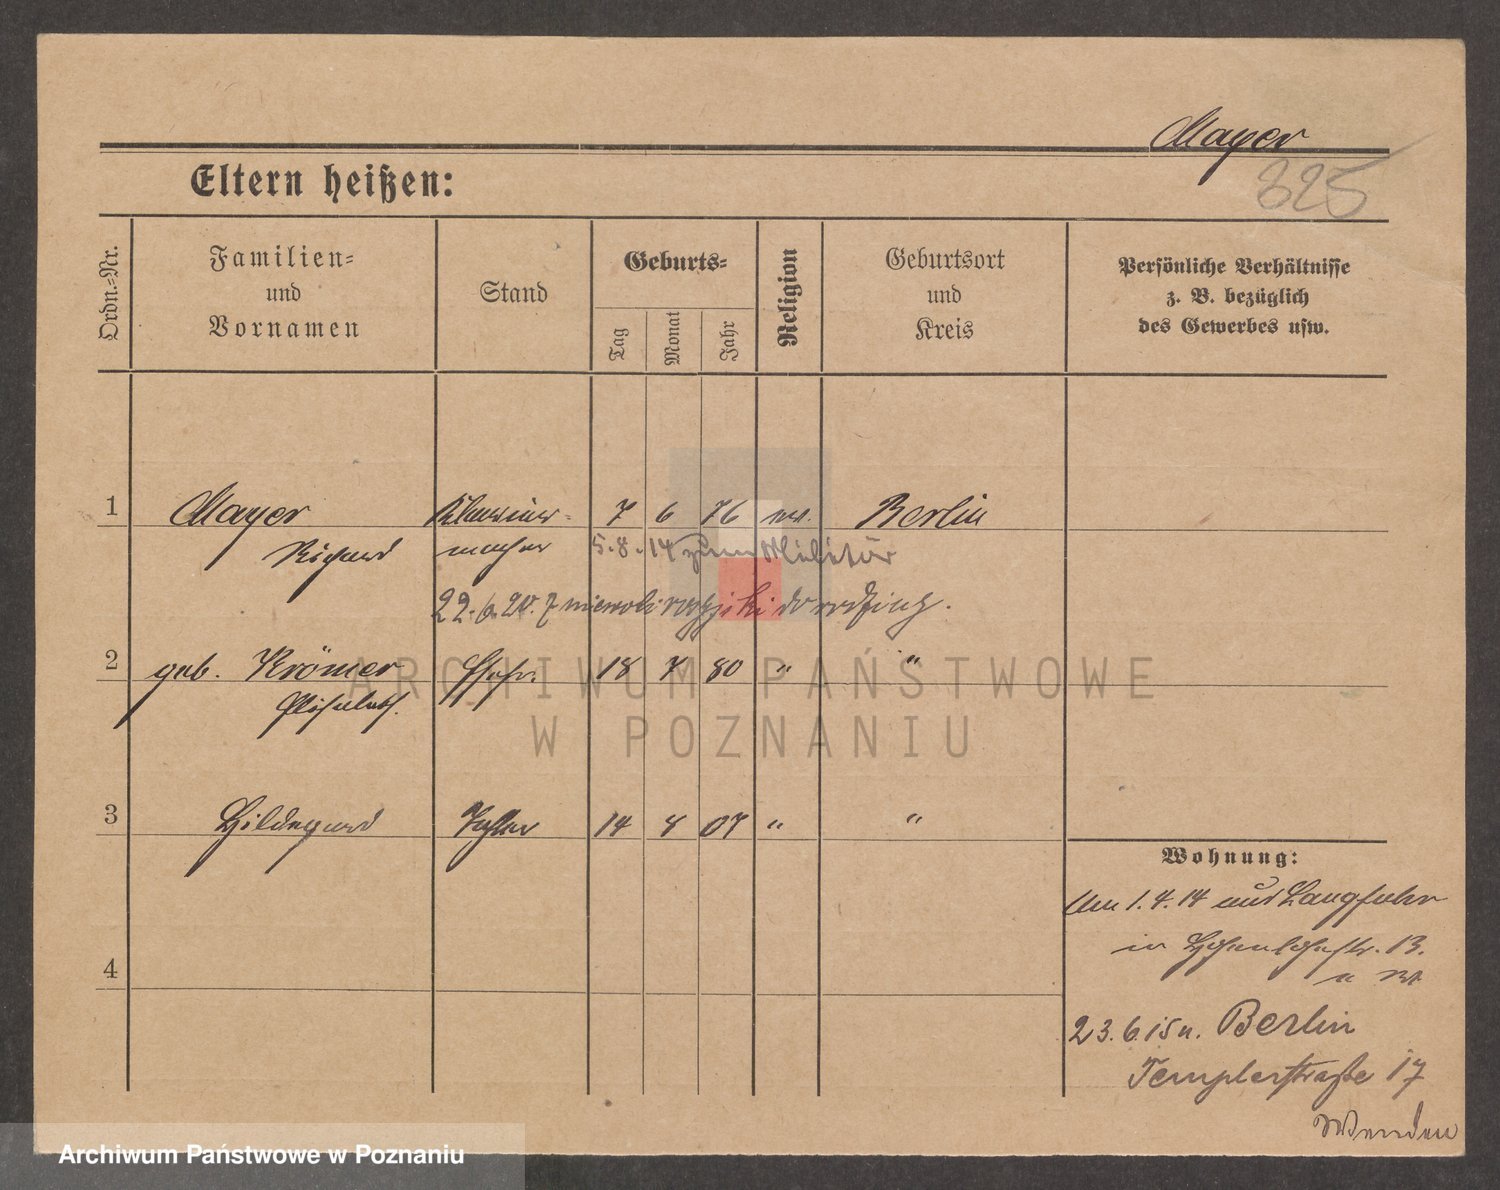 Mayer
325
Eltern heißen:
Ordn.-Nr.
Familien-
und
Vornamen
Stand
Geburts-
Tag
Monat
Jahr
Religion
Geburtsort
und
Kreis
Persönliche Verhältnisse
z. B. bezüglich
des Gewerbes usw.
1 Mayer Klavier- 7 6 76 ev. Berlin
Richard macher 5.8.14 zum Militär
22.6.20. z niewoli rosyjski do rodziny.
2 geb. Krömer Ehefr. 18 7 80 " "
Elisabeth.
3 Hildegard Tochter 14 8 07 " "
4
Wohnung:
Am 1.4.14 aus Langfuhr
in 13.
23.6.15 n. Berlin
Templerstraße 17
Wenden
ARCHIWUM PAŃSTWOWE
W POZNANIU
Archiwum Państwowe w Poznaniu